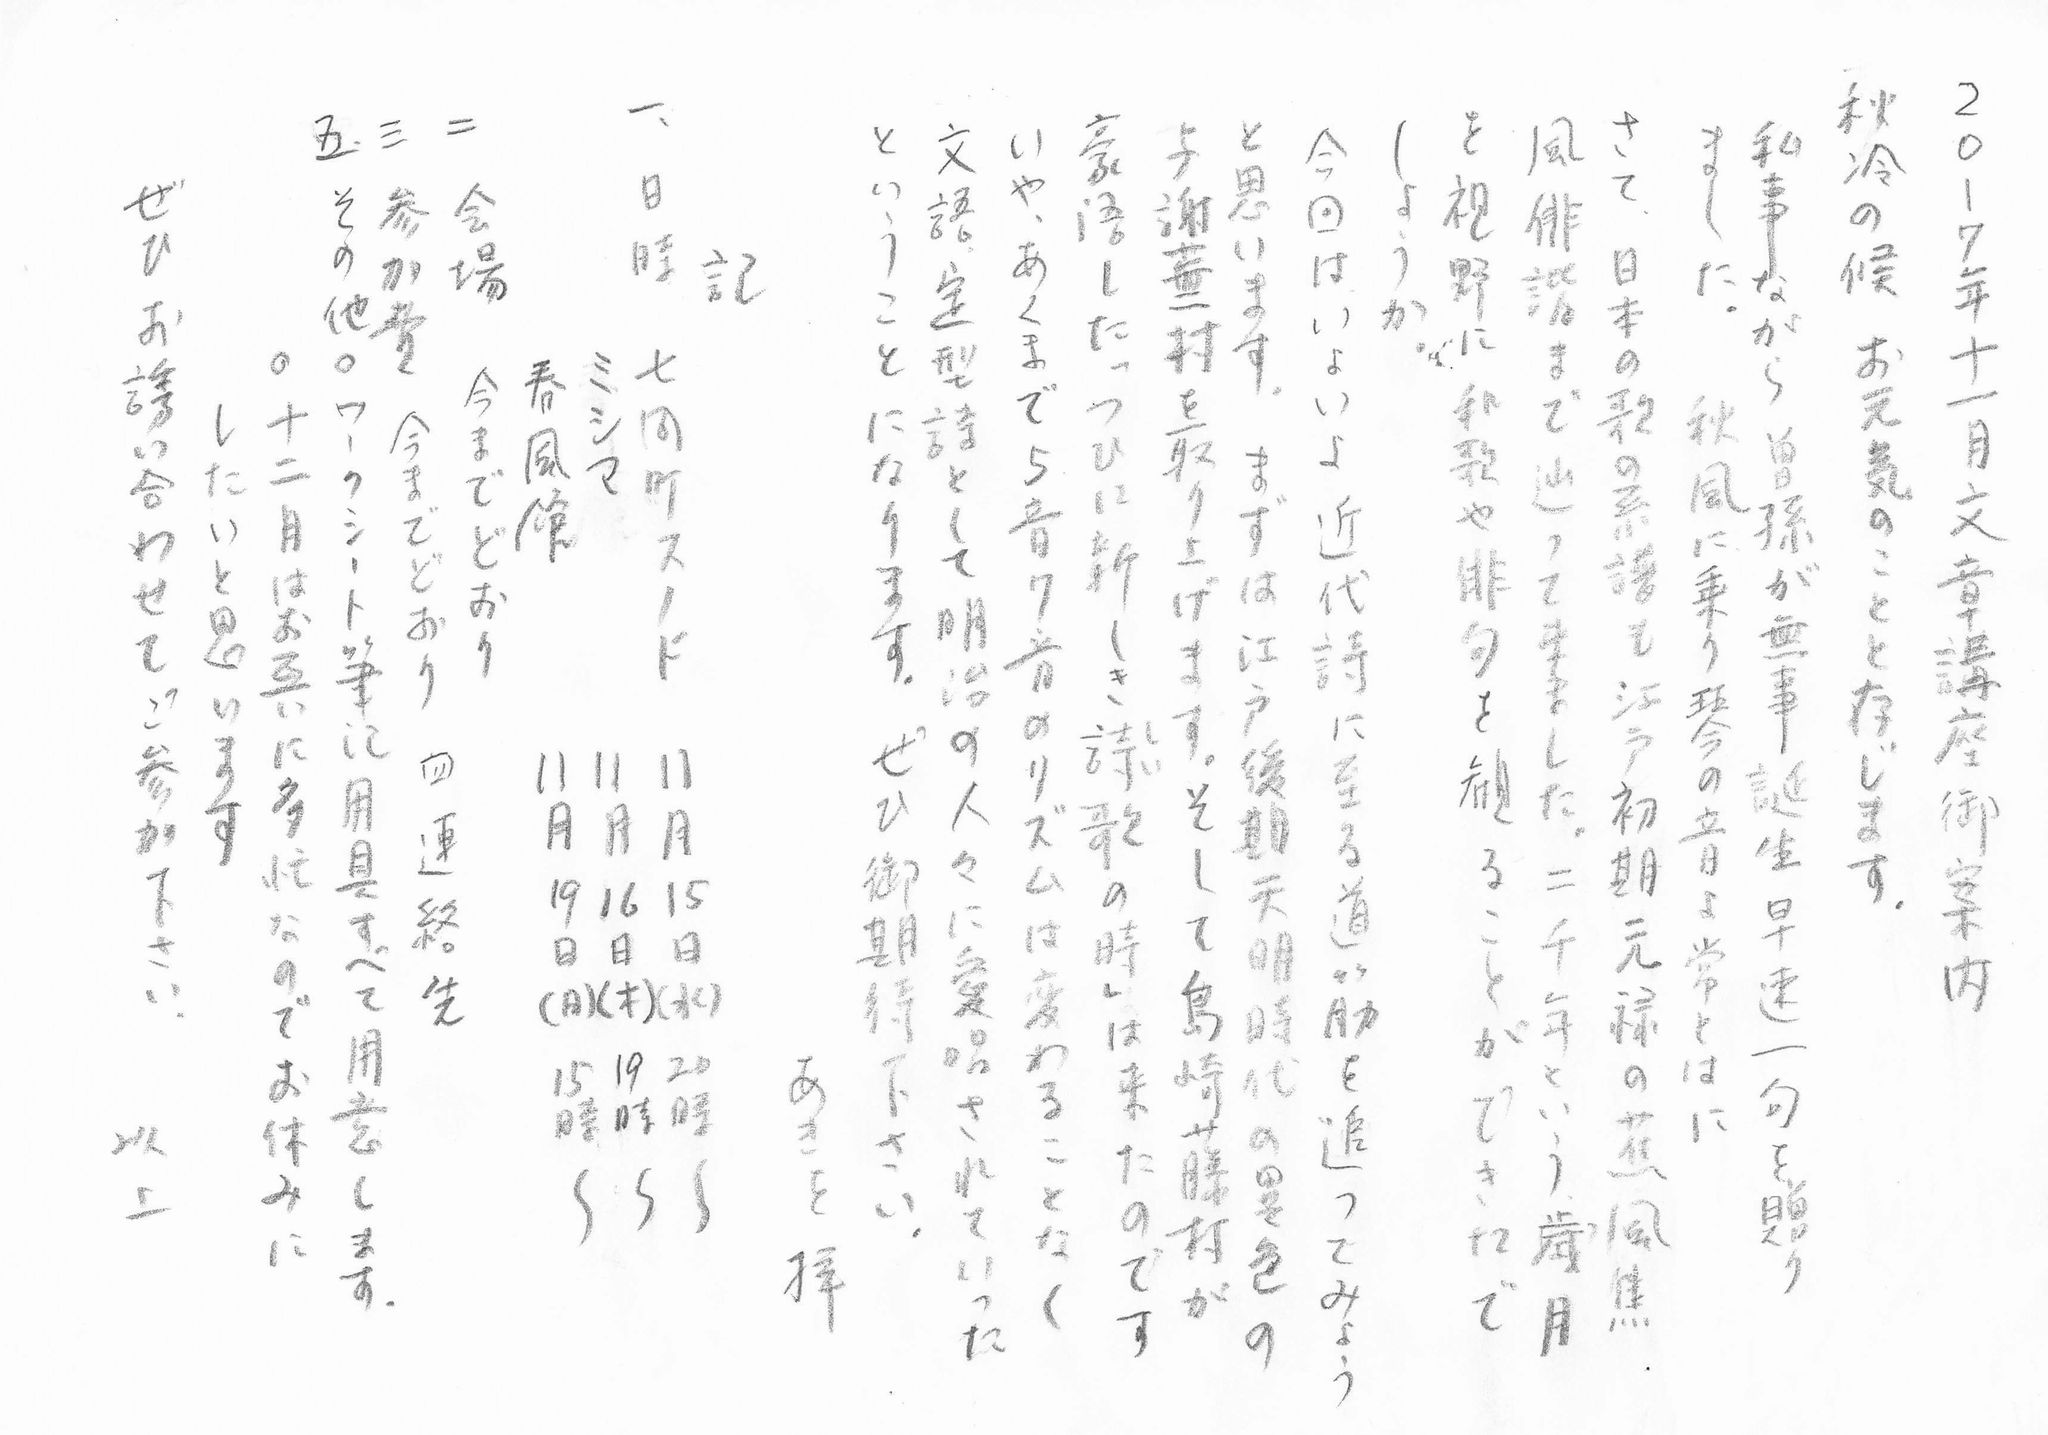 2017年十一月文章講座御案内
秋冷の候 お元気のことと存じます。
私事ながら曽孫が無事誕生早速一句を贈り
ました。 秋風に乗り琴の音よ常とはに
さて、日本の歌の系譜も江戸初期元禄の蕉風焦
風俳諧まで辿って来ました。二千年という、歳月
を視野に和歌や俳句を観ることができたで
しょうか。
今回はいよいよ近代詩に至る道筋を追ってみよう
と思います。まずは江戸後期天明時代の異色の
与謝蕪村を取り上げます。そして島崎藤村が
豪語したっつひに新しき詩歌の時」は来たのです
いや、あくまで5音7音のリズムは変わることなく
文語、定型詩として明治の人々に愛唱されていった
ということになります。ぜひ御期待下さい。
あきを 拝
記
一、日時 七間町スノド 11月15日(水) 20時〜
ミシマ 11月16日(木) 19時〜
春風館 11月19日(日) 15時〜
二 会場 今までどおり
三 参加費 今までどおり 四 連絡先
五. その他 ○ワークシート筆記用具すべて用意します。
○十二月はお互いに多忙なのでお休みに
したいと思います
ぜひお誘い合わせてご参加下さい. 以上